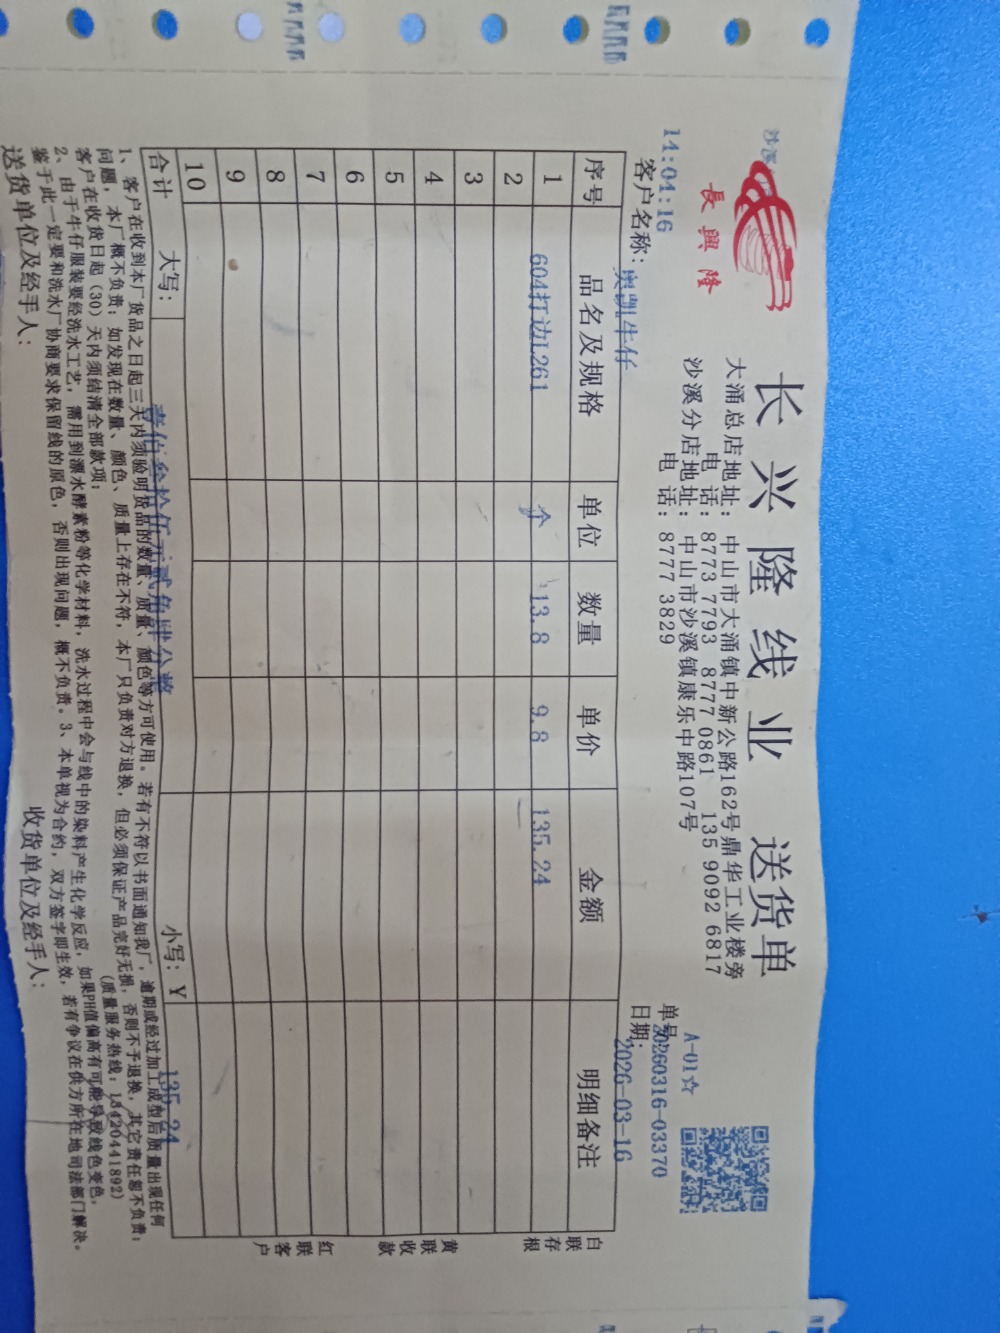 長興隆
长兴隆线业 送货单
大涌总店地址：中山市大涌镇中新公路162号鼎华工业楼旁
电话：8773 7793 8777 0861 135 9092 6817
沙溪分店地址：中山市沙溪镇康乐中路107号
电话：8777 3829
A-01☆
单号：20260316-03370
14:04:16
客户名称：奥凯牛仔
日期：2026-03-16
序号 品名及规格 单位 数量 单价 金额 明细备注
1 604打边L261 个 13.8 9.8 135.24
2
3
4
5
6
7
8
9
10
合计 大写：壹佰叁拾伍元贰角肆分整 小写：Y 135.24
白联存根
黄联收款
红联客户
1、客户在收到本厂货品之日起三天内须验明货品的数量、质量、颜色等方可使用。若有不符以书面通知我厂，逾期或经过加工成型后质量出现任何
问题，本厂概不负责；如发现在数量、颜色、质量上存在不符，本厂只负责对方退换，但必须保证产品完好无损，否则不予退换，其它责任恕不负责；
客户在收货日起（30）天内须结清全部款项； （质量服务热线：13420441892）
2、由于牛仔服装要经洗水工艺，需用到漂水酵素粉等化学材料，洗水过程中会与线中的染料产生化学反应，如果PH值偏高有可能导致线色变色，
鉴于此一定要和洗水厂协商要求保留线的原色，否则出现问题，概不负责。3、本单视为合约，双方签字即生效，若有争议在供方所在地司法部门解决。
送货单位及经手人： 收货单位及经手人：